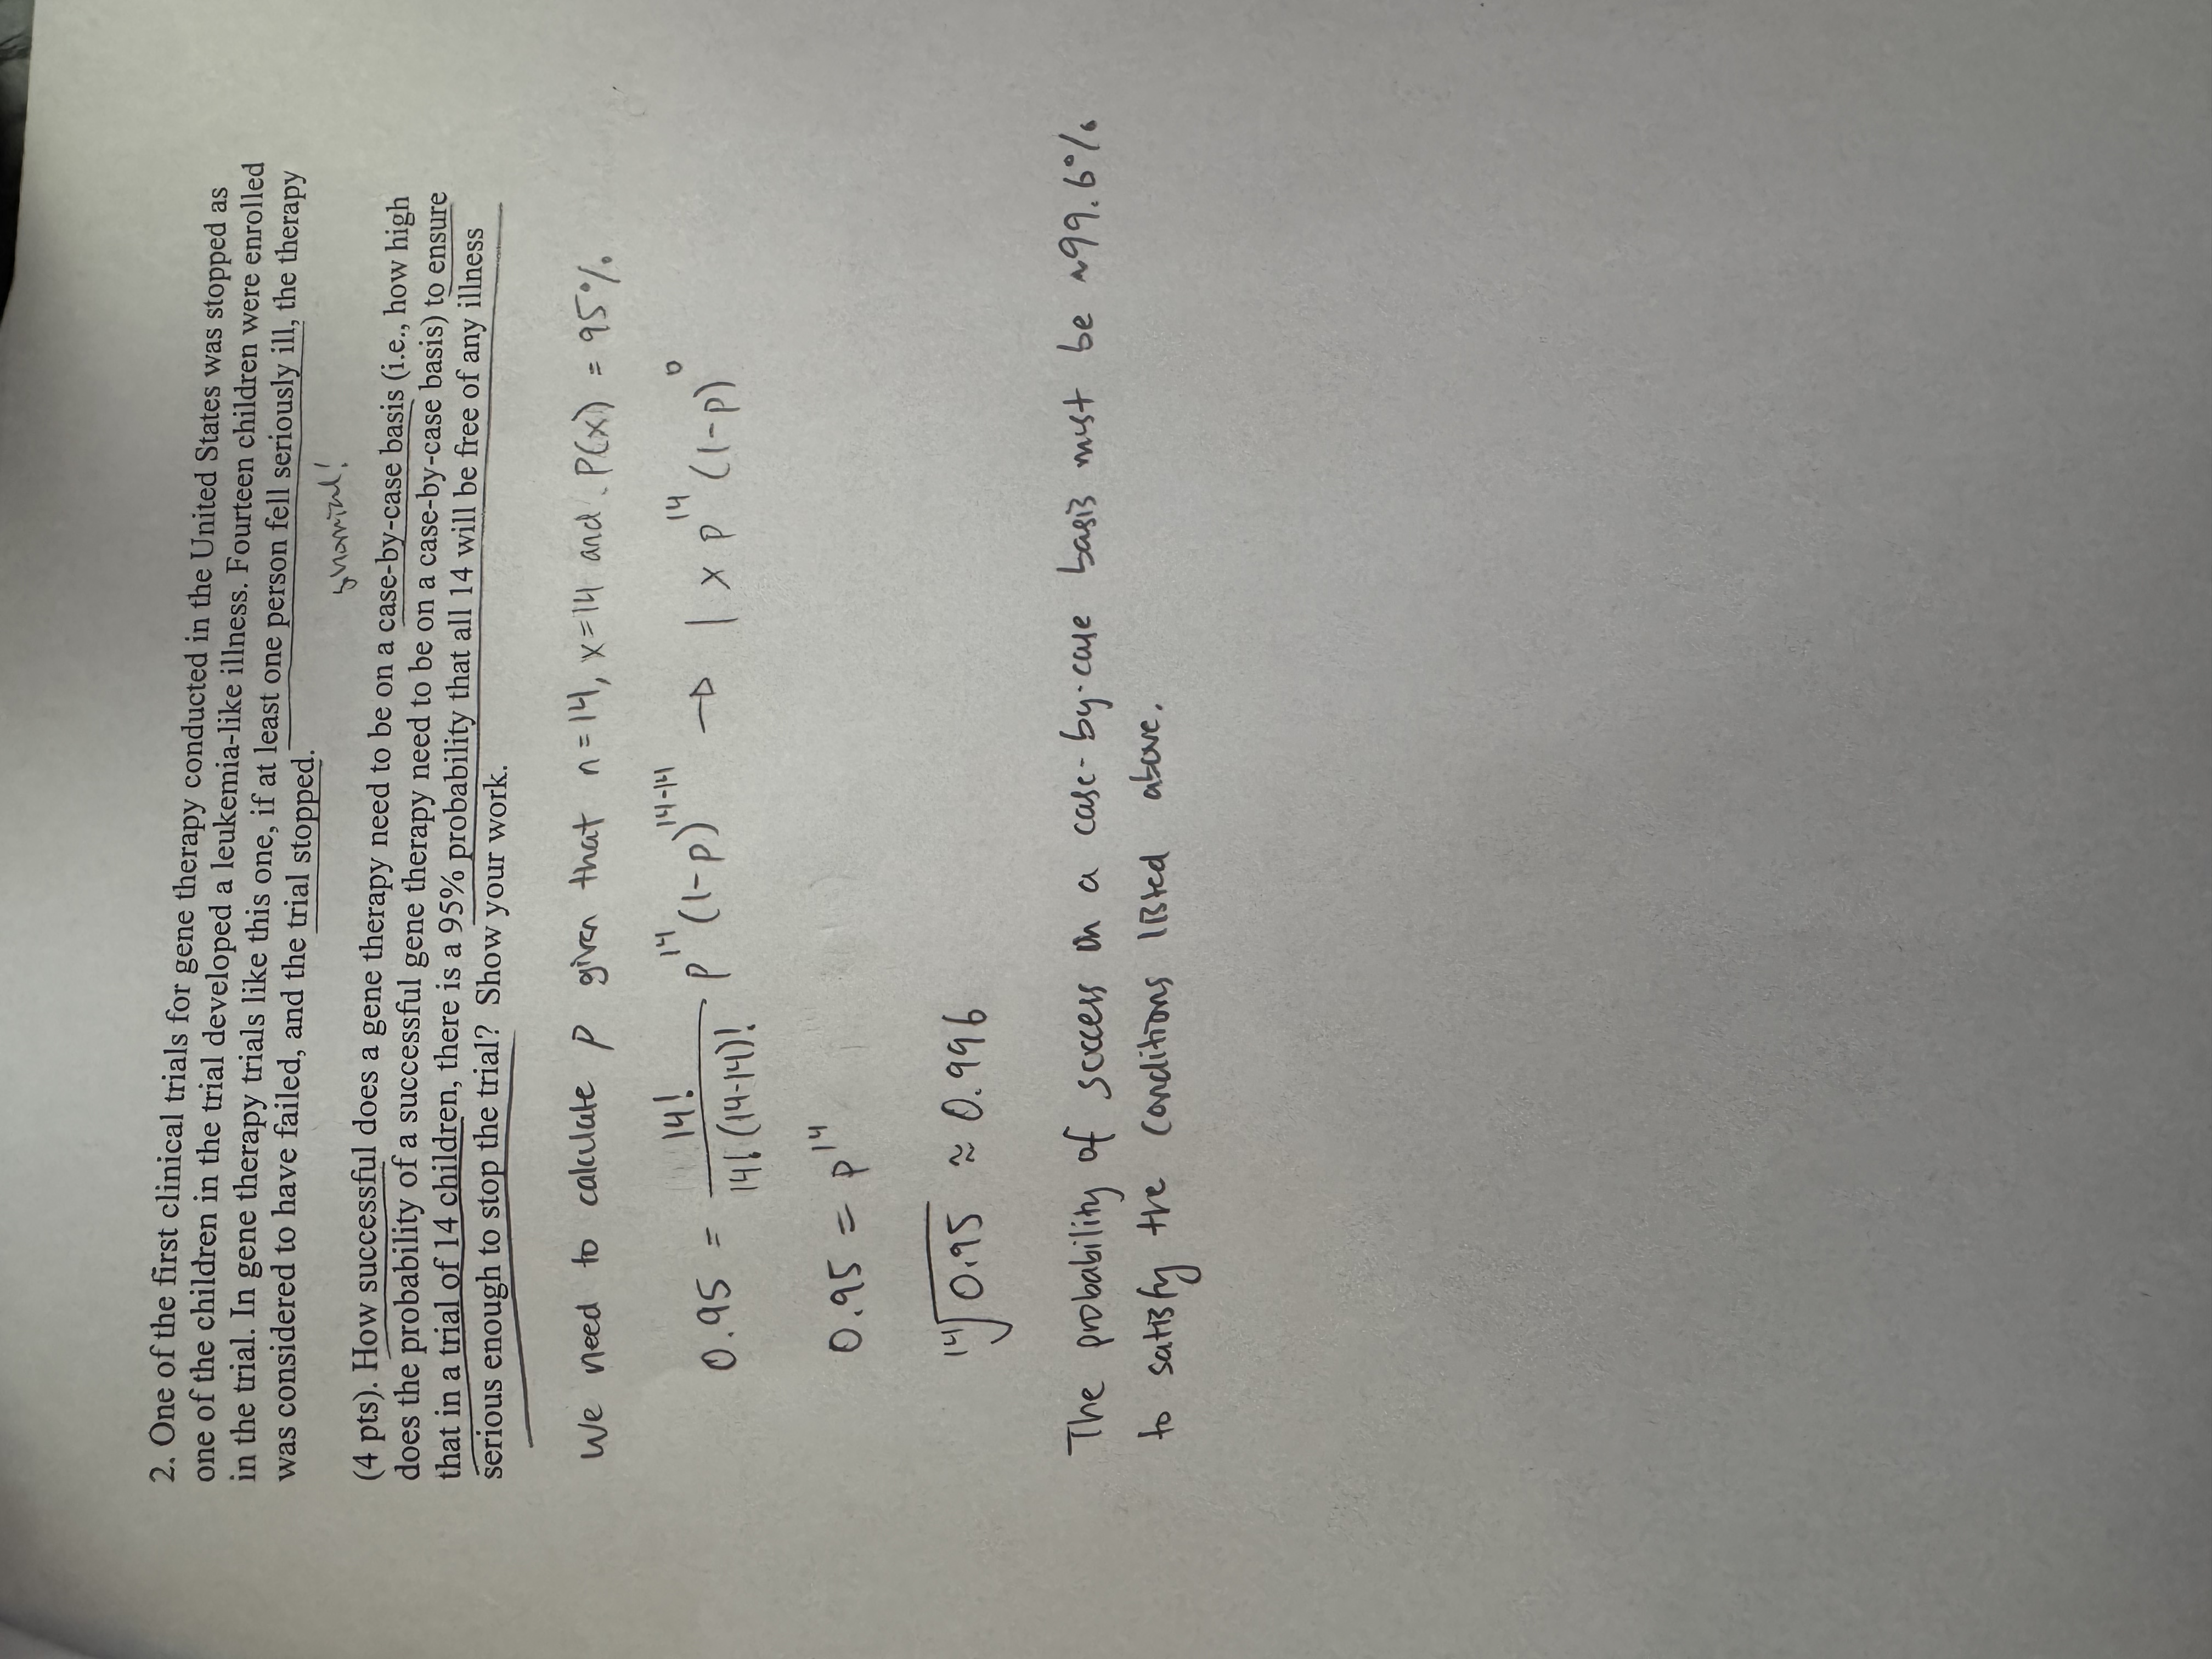 2. One of the first clinical trials for gene therapy conducted in the United States was stopped as
one of the children in the trial developed a leukemia-like illness. Fourteen children were enrolled
in the trial. In gene therapy trials like this one, if at least one person fell seriously ill, the therapy
was considered to have failed, and the trial stopped.
(4 pts). How successful does a gene therapy need to be on a case-by-case basis (i.e., how high
does the probability of a successful gene therapy need to be on a case-by-case basis) to ensure
that in a trial of 14 children, there is a 95% probability that all 14 will be free of any illness
serious enough to stop the trial? Show your work.
We need to calculate p given that n=14, x=14 and P(x) = 95%
0.95 = 14! / 14! (14-14)! p^14 (1-p)^14-14 → 1 x p^14 (1-p)^0
0.95 = p^14
14√0.95 ≈ 0.996
The probability of success on a case-by-case basis must be ~99.6%
to satisfy the conditions listed above.